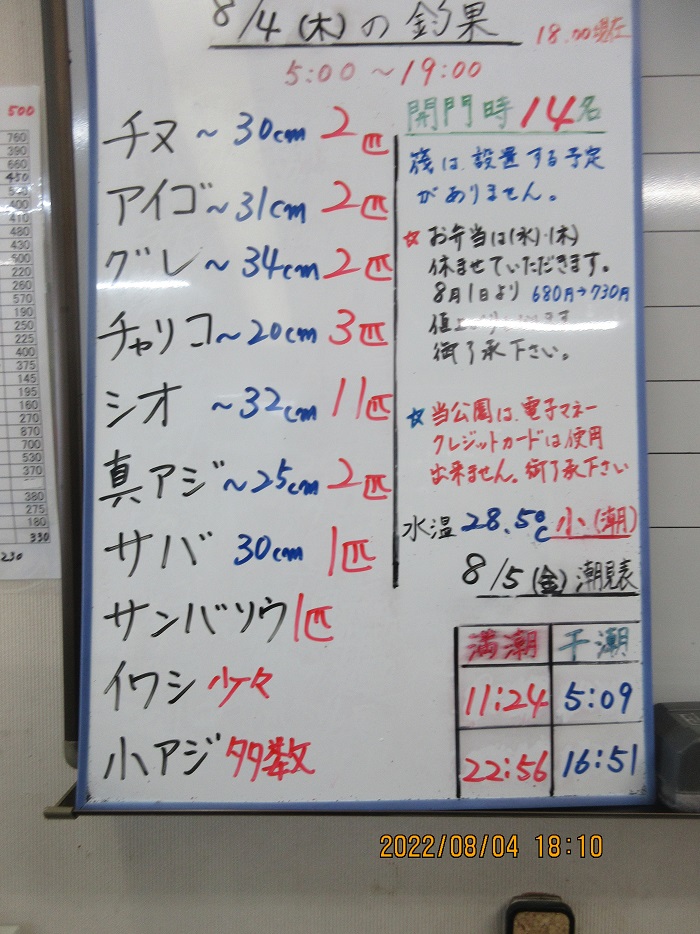 8/4(木)の釣果
18.00現在
5:00~19:00
チヌ ~30cm 2匹
アイゴ~31cm 2匹
グレ ~34cm 2匹
チャリコ~20cm 3匹
シオ ~32cm 11匹
真アジ~25cm 2匹
サバ 30cm 1匹
サンバソウ1匹
イワシ 少々
小アジ 多数
開門時 14名
筏は、設置する予定
がありません。
☆お弁当は(水)・(木)
休ませていただきます。
8月1日より 680円→730円
御了承下さい。
☆当公園は、電子マネー
クレジットカードは使用
出来ません。御了承下さい
水温 28.5℃ 小(潮)
8/5(金)潮見表
満潮 干潮
11:24 5:09
22:56 16:51
500
760
390
660
450
520
400
410
480
430
500
220
260
570
190
250
225
400
375
145
195
160
270
870
700
530
370
380
275
180
330
230
2022/08/04 18:10